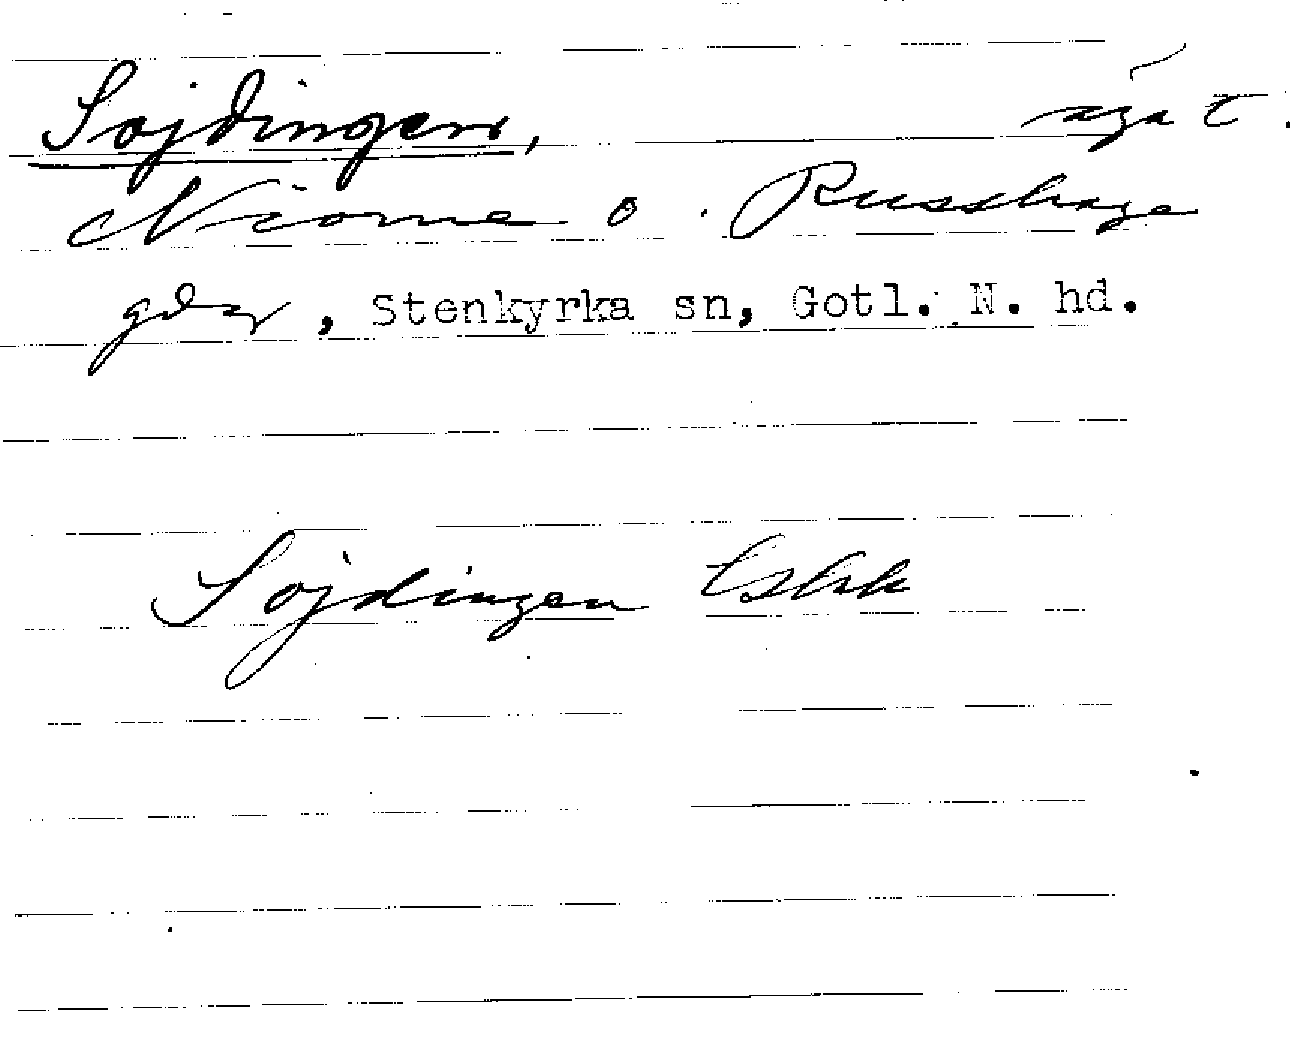 Sojdingen, äga t.
Niome o. Russhage
gdar, Stenkyrka sn, Gotl. N. hd.
Sojdingen